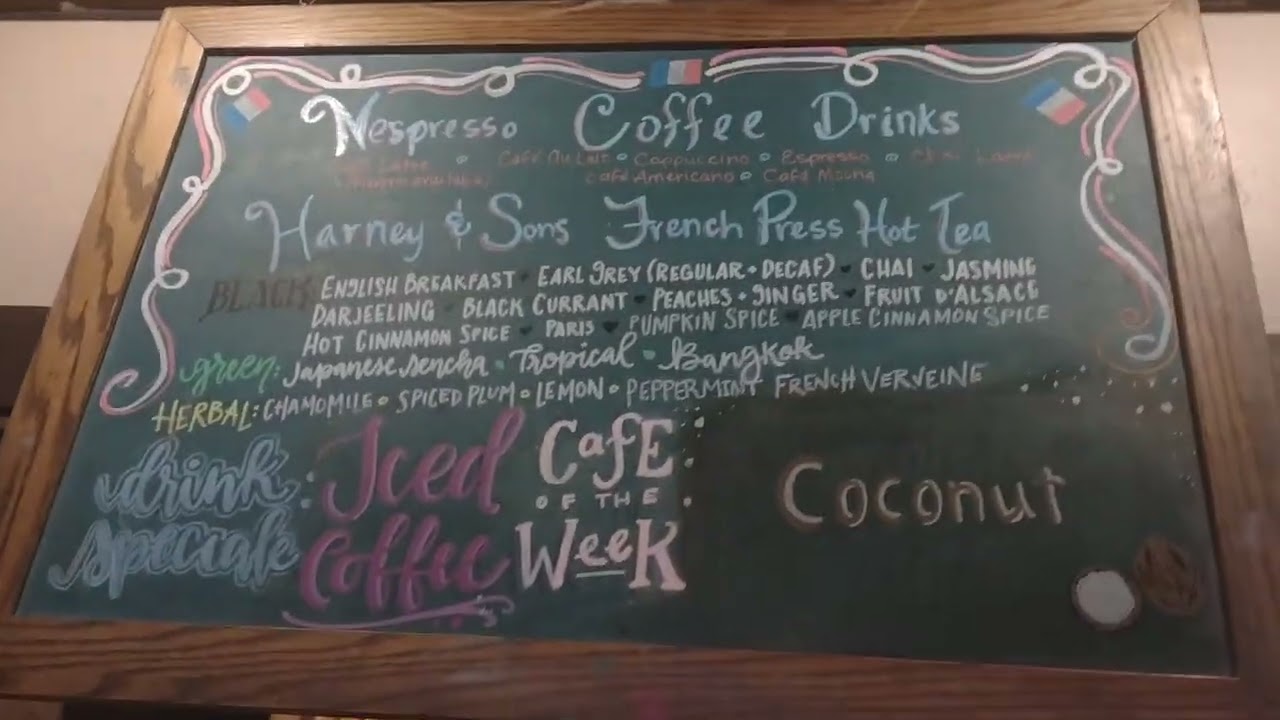 Nespresso Coffee Drinks
Latte • Café Au Lait • Cappuccino • Espresso • Latte
Café Americano • Café Mocha
Harney & Sons French Press Hot Tea
BLACK: ENGLISH BREAKFAST • EARL GREY (REGULAR + DECAF) • CHAI • JASMINE
DARJEELING • BLACK CURRANT • PEACHES + GINGER • FRUIT D'ALSACE
HOT CINNAMON SPICE • PARIS • PUMPKIN SPICE • APPLE CINNAMON SPICE
green: Japanese Sencha • Tropical • Bangkok
HERBAL: CHAMOMILE • SPICED PLUM • LEMON • PEPPERMINT FRENCH VERVEINE
drink speciale: Iced Coffee
CAfE OF THE WeeK:
Coconut